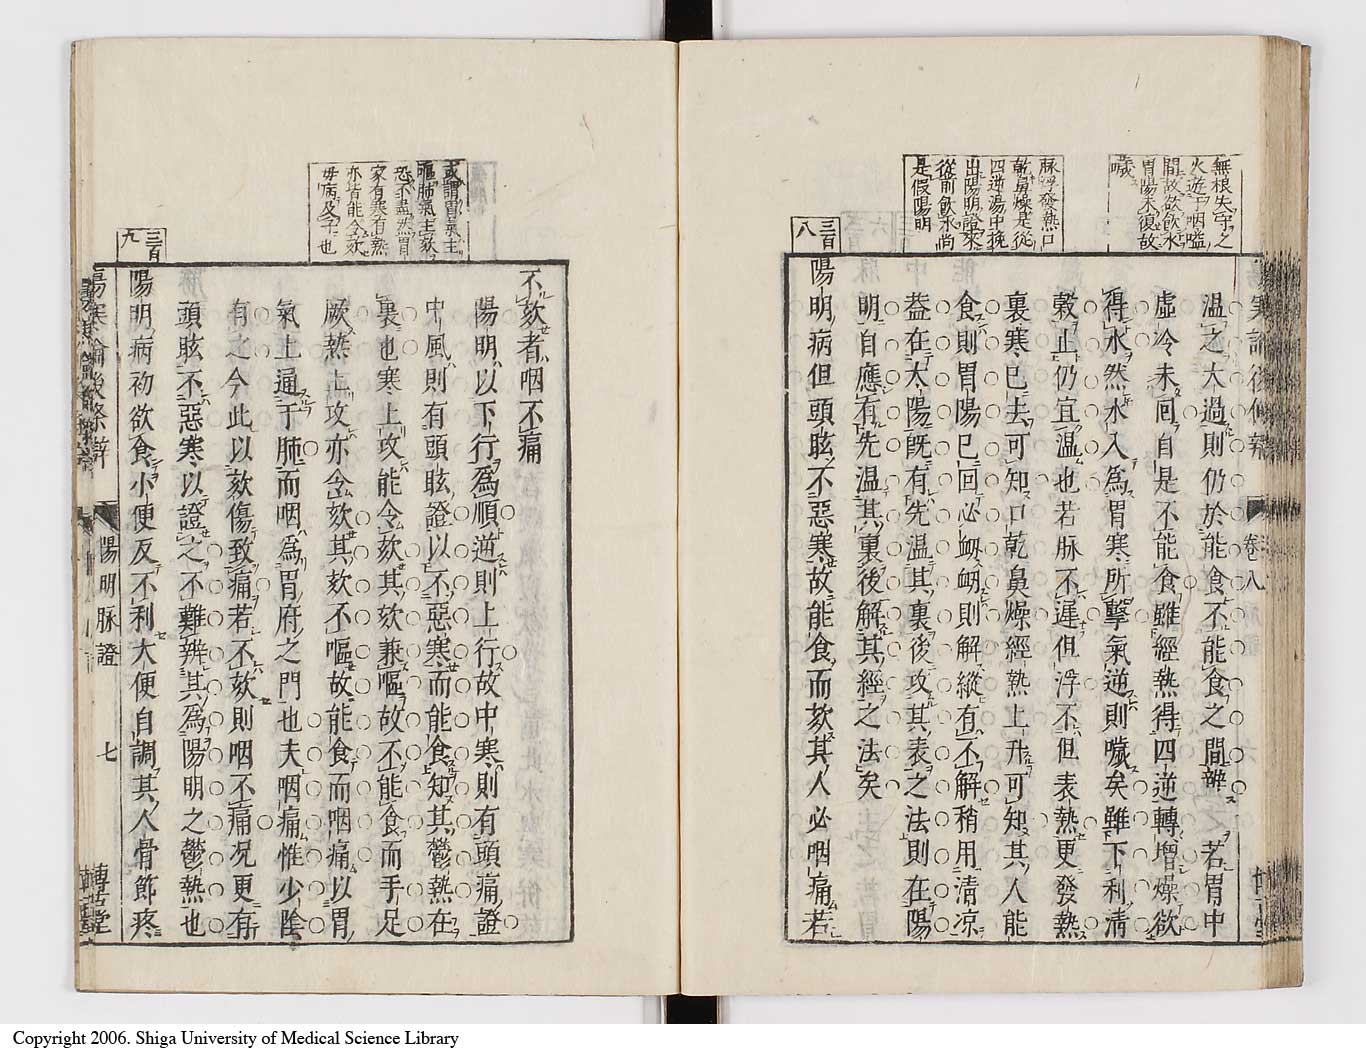 無根失守之
火遊于咽嗌
間故欲飲水
胃陽未復故
噦
脉浮發熱口
乾鼻燥是從
四逆湯中挽
出陽明證來
從前飲水尚
是假陽明
三百
八
傷寒論後條辨
卷八
溫之太過則仍於能食不能食之間辨之若胃中
虛冷未回自是不能食雖經熱得四逆轉增燥欲
得水然水入為胃寒所擊氣逆則噦矣雖下利淸
穀止仍宜溫也若脉不遲但浮不但表熱更發熱
裏寒已去可知口乾鼻燥經熱上升可知其人能
食則胃陽已回必衂衂則解縱有不解稍用清凉
葢在太陽旣有先溫其裏後攻其表之法則在陽
明自應有先溫其裏後解其經之法矣
陽明病但頭眩不惡寒故能食而欬其人必咽痛若
或謂胃氣主
嘔肺氣主欬
恐不盡然胃
家有寒有熱
亦皆能令欬
毋病及子也
三百
九
不欬者咽不痛
陽明以下行為順逆則上行故中寒則有頭痛證
中風則有頭眩證以不惡寒而能食知其鬱熱在
裏也寒上攻能令欬其欬兼嘔故不能食而手足
厥熱上攻亦令欬其欬不嘔故能食而咽痛以胃
氣上通于肺而咽為胃府之門也夫咽痛惟少陰
有之今此以欬傷致痛若不欬則咽不痛況更有
頭眩不惡寒以證之不難辨其為陽明之鬱熱也
陽明病初欲食小便反不利大便自調其人骨節疼
傷寒論後條辨
陽明脉證
七
博古堂
Copyright 2006. Shiga University of Medical Science Library